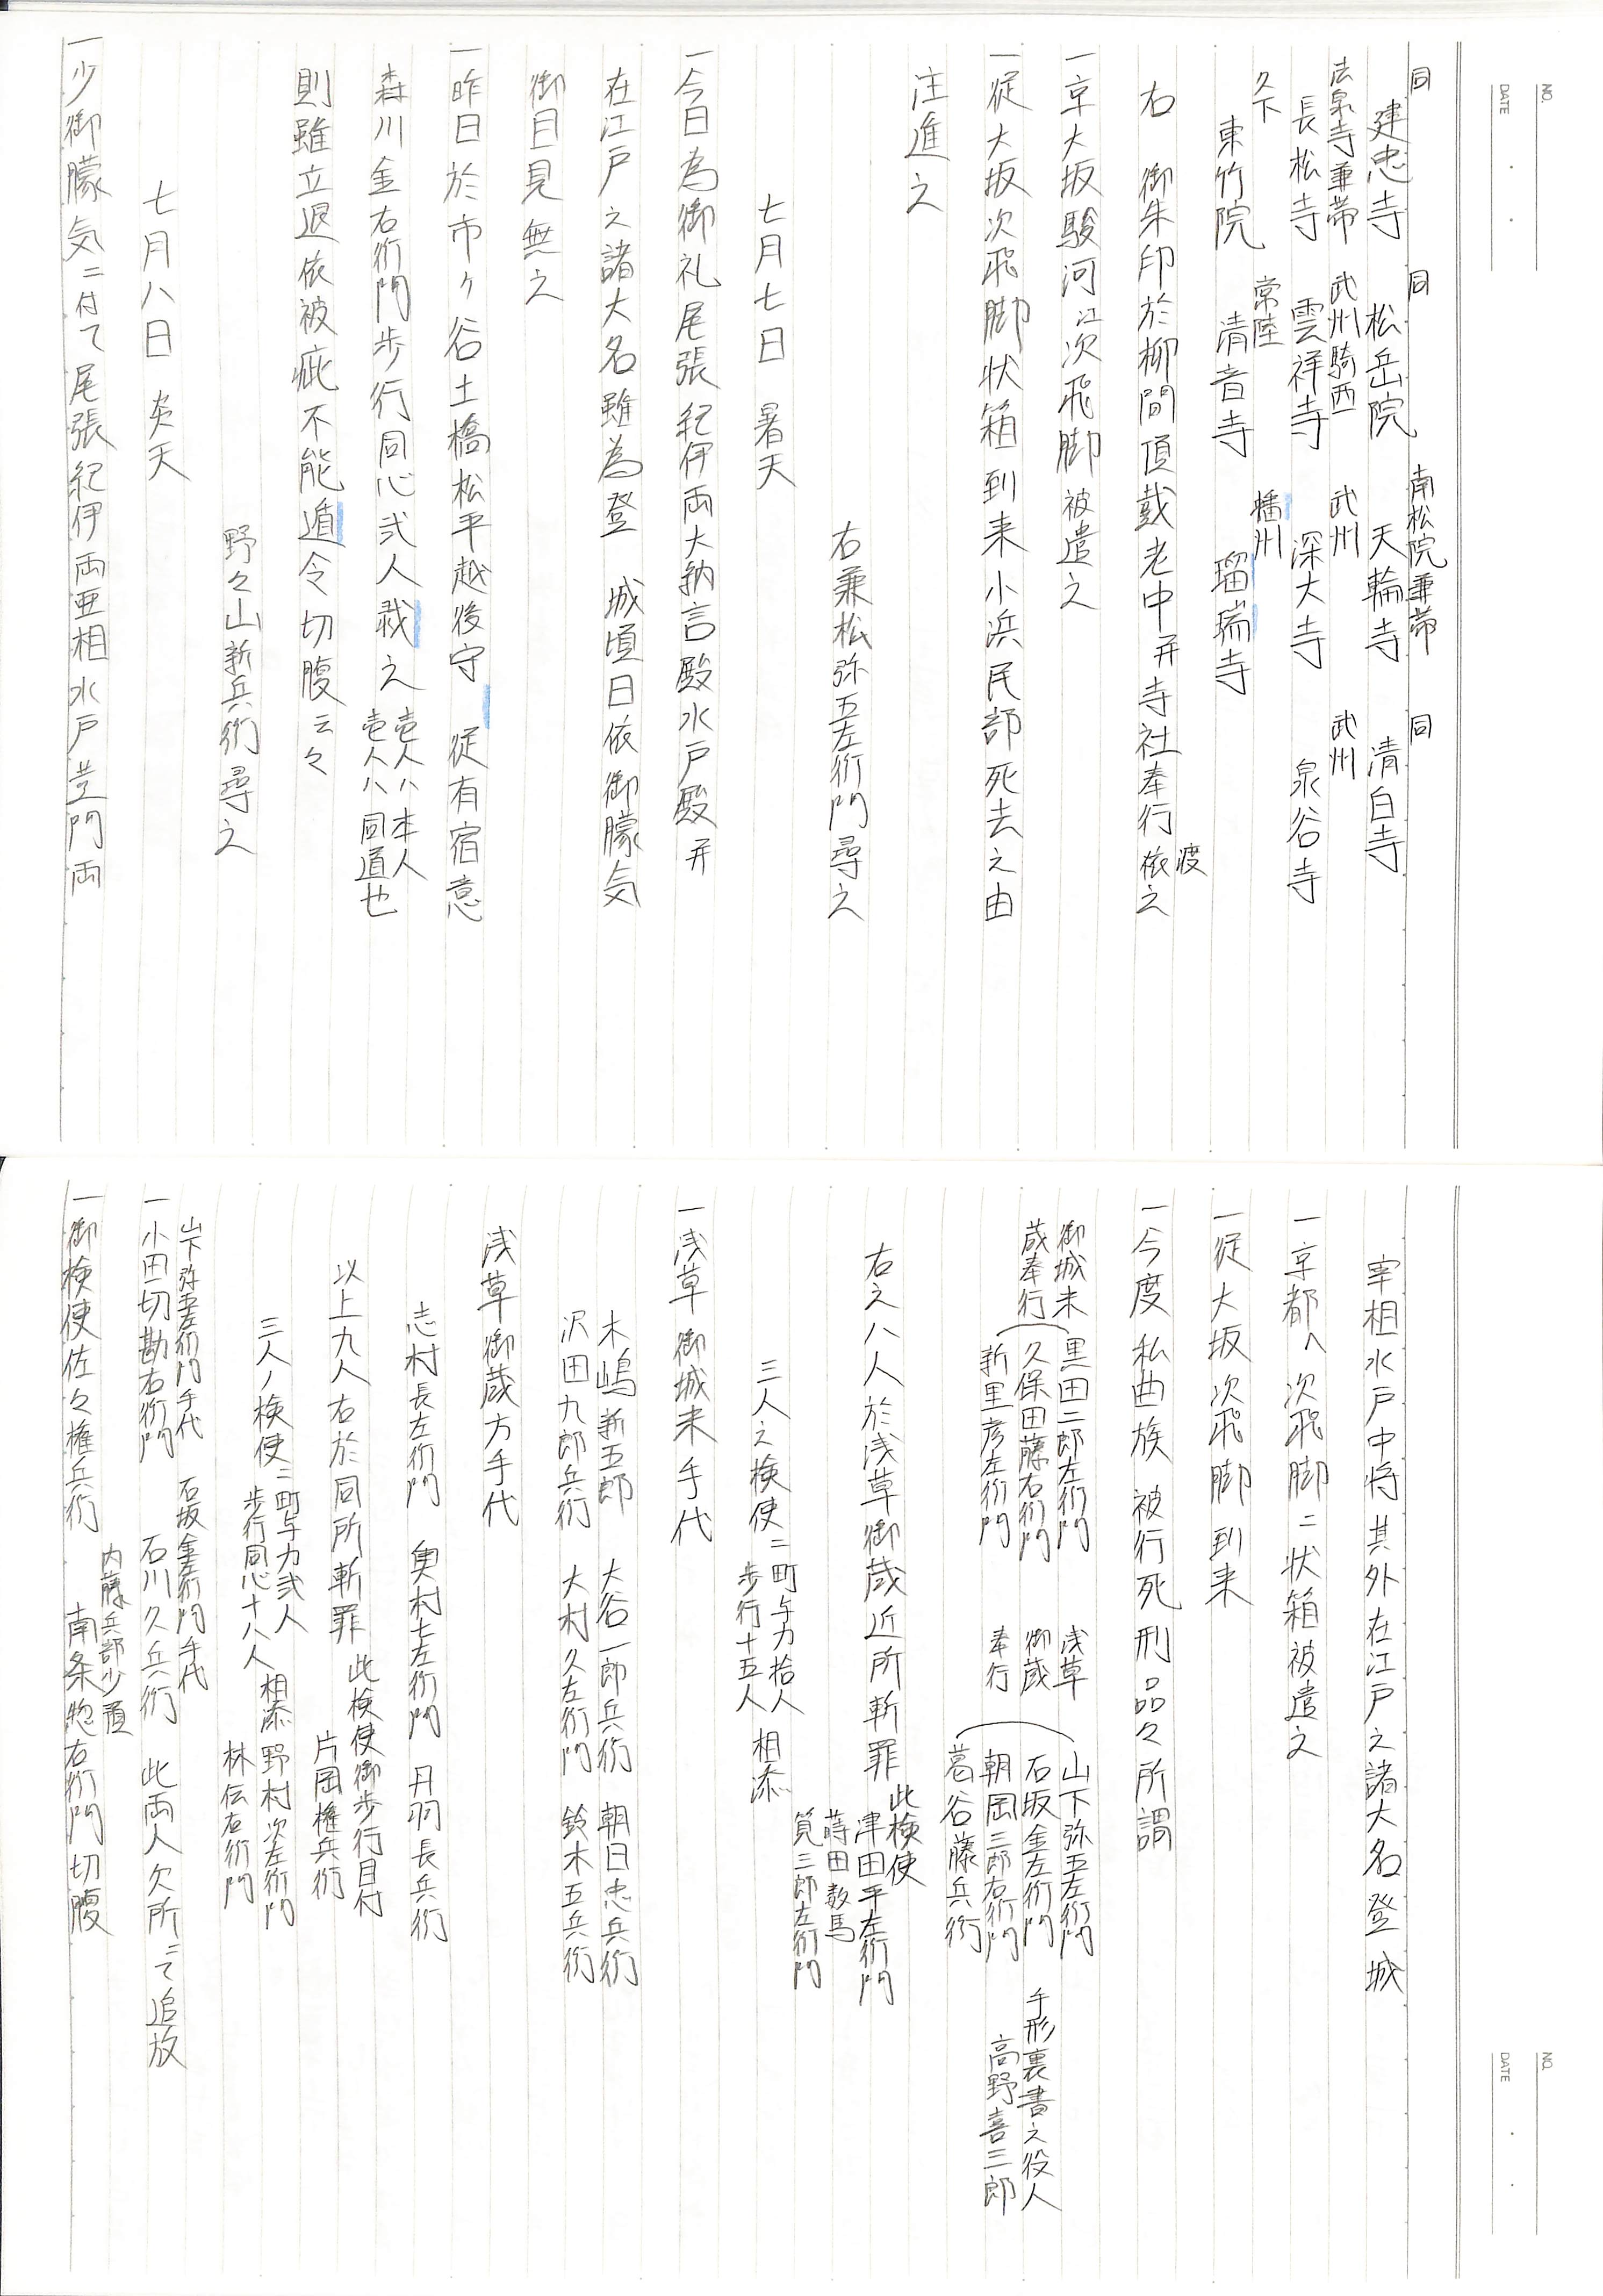 同　同　南松院兼帯　同
建忠寺　松岳院　天輪寺　清白寺
法泉寺兼帯　武州騎西　武州　武州
長松寺　雲祥寺　深大寺　泉谷寺
久下　常陸　播州
東竹院　清音寺　瑠瑞寺
右　御朱印於柳間頂戴老中并寺社奉行渡依之
一京大坂駿河江次飛脚被遣之
一従大坂次飛脚状箱到来小浜民部死去之由
注進之
右兼松弥五左衛門尋之
七月七日　暑天
一今日為御礼尾張紀伊両大納言殿水戸殿并
在江戸之諸大名雖為登　城頃日依御朦気
御目見無之
一昨日於市ヶ谷土橋松平越後守　従有宿意
森川金右衛門歩行同心弐人戕之壱人ハ本人
壱人ハ同道也
則雖立退依被疵不能遁令切腹云々
野々山新兵衛尋之
七月八日　炎天
一少御朦気ニ付て尾張紀伊両亜相水戸黄門両
宰相水戸中将其外在江戸之諸大名登城
一京都へ次飛脚ニ状箱被遣之
一従大坂次飛脚到来
一今度私曲族被行死刑品々所謂
御城米
蔵奉行
黒田二郎左衛門
久保田藤右衛門
新里彦左衛門
浅草
御蔵
奉行
山下弥五左衛門
石坂金左衛門
朝岡三郎右衛門
葛谷藤兵衛
手形裏書之役人
高野喜三郎
右之八人於浅草御蔵近所斬罪
此検使
津田平左衛門
蒔田数馬
筧三郎左衛門
三人之検使ニ町与力拾人
歩行十五人
相添
一浅草御城米手代
木嶋新五郎　大谷一郎兵衛　朝日忠兵衛
沢田九郎兵衛　大村久左衛門　鈴木五兵衛
浅草御蔵方手代
志村長左衛門　奥村七左衛門　丹羽長兵衛
以上九人右於同所斬罪
此検使御歩行目付
片岡権兵衛
三人ノ検使ニ町与力弐人
歩行同心十八人
相添
野村次左衛門
林伝右衛門
山下弥五左衛門手代　石坂金左衛門手代
一小田切勘右衛門　石川久兵衛　此両人欠所ニて追放
内藤兵部少輔
一御検使佐々権兵衛　南条惣右衛門切腹
NO.
DATE
NO.
DATE